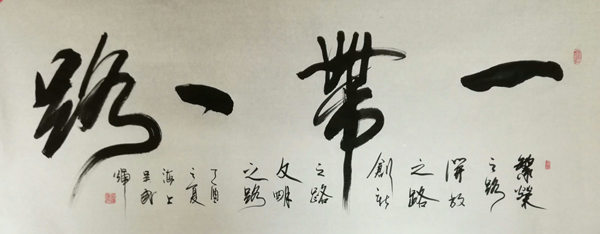 一帶一路
繁榮
之路
開放
之路
創新
之路
文明
之路
丁酉
之夏
海上